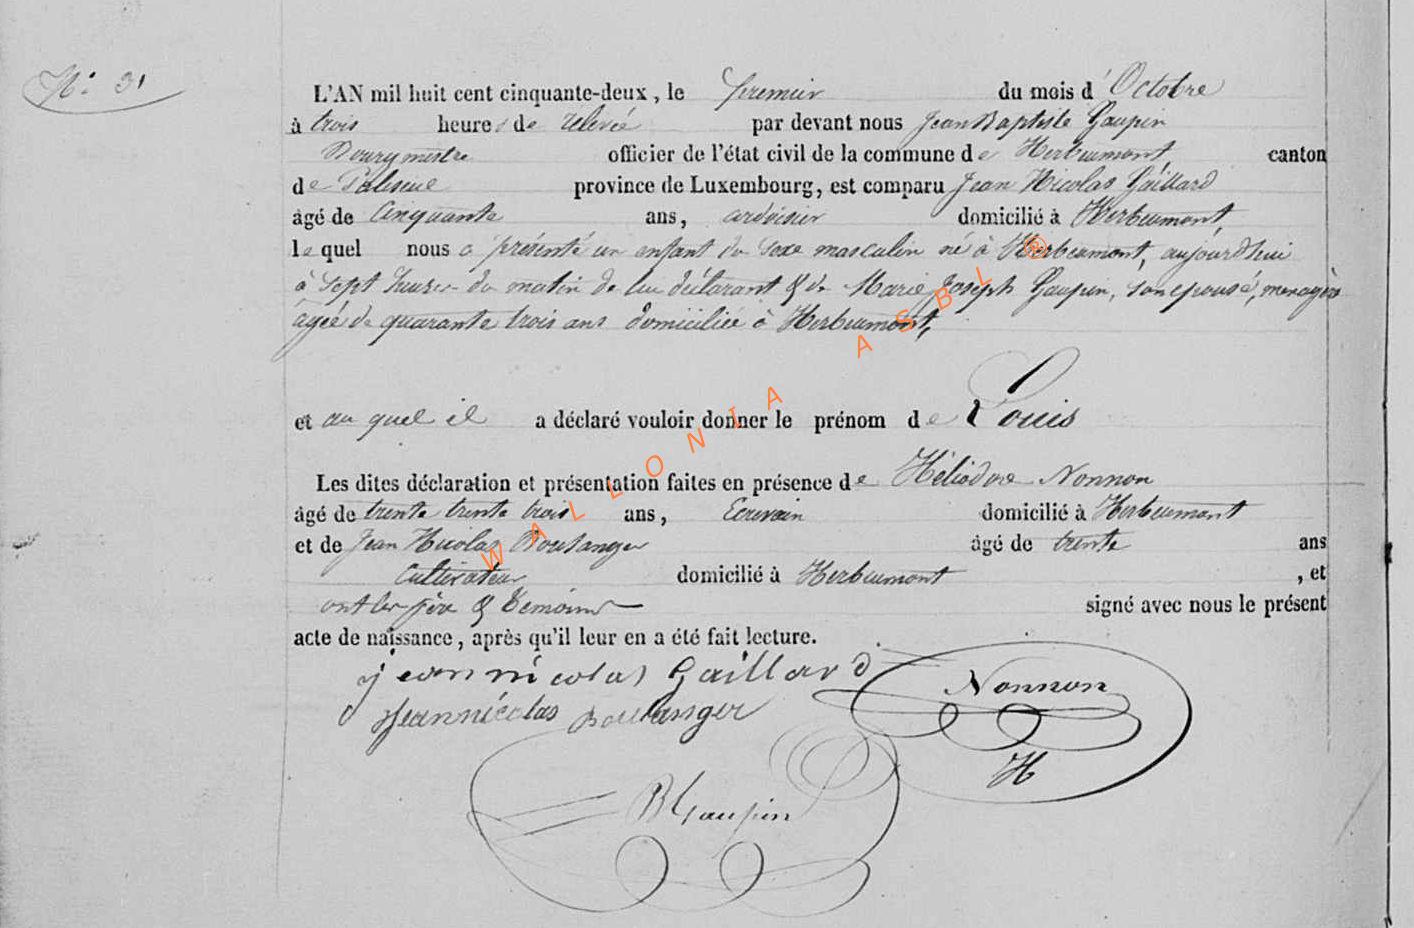 N° 31
L'AN mil huit cent cinquante-deux, le premier du mois d'Octobre
à trois heures de relevée par devant nous Jean Baptiste Gaupin
Bourgmestre officier de l'état civil de la commune de Herbeumont, canton
de Paliseul province de Luxembourg, est comparu Jean Nicolas Gaillard
âgé de Cinquante ans, ardoisier domicilié à Herbeumont,
lequel nous a présenté un enfant du sexe masculin né à Herbeumont, aujourd'hui
à sept heures du matin de lui déclarant & de Marie Joseph Gaupin, son épouse, menagère
âgée de quarante trois ans domiciliée à Herbeumont,
et au quel il a déclaré vouloir donner le prénom de Louis
Les dites déclaration et présentation faites en présence de Héliodore Nonnon
âgé de trente trente trois ans, Ecrivain domicilié à Herbeumont
et de Jean Nicolas Boulanger âgé de trente ans
Cultivateur domicilié à Herbeumont, et
ont les père & témoins signé avec nous le présent
acte de naissance, après qu'il leur en a été fait lecture.
jean nicolas Gaillard
Nonnon
Jean nicolas Boulanger
H
B Gaupin
WALLONIA ASBL ®